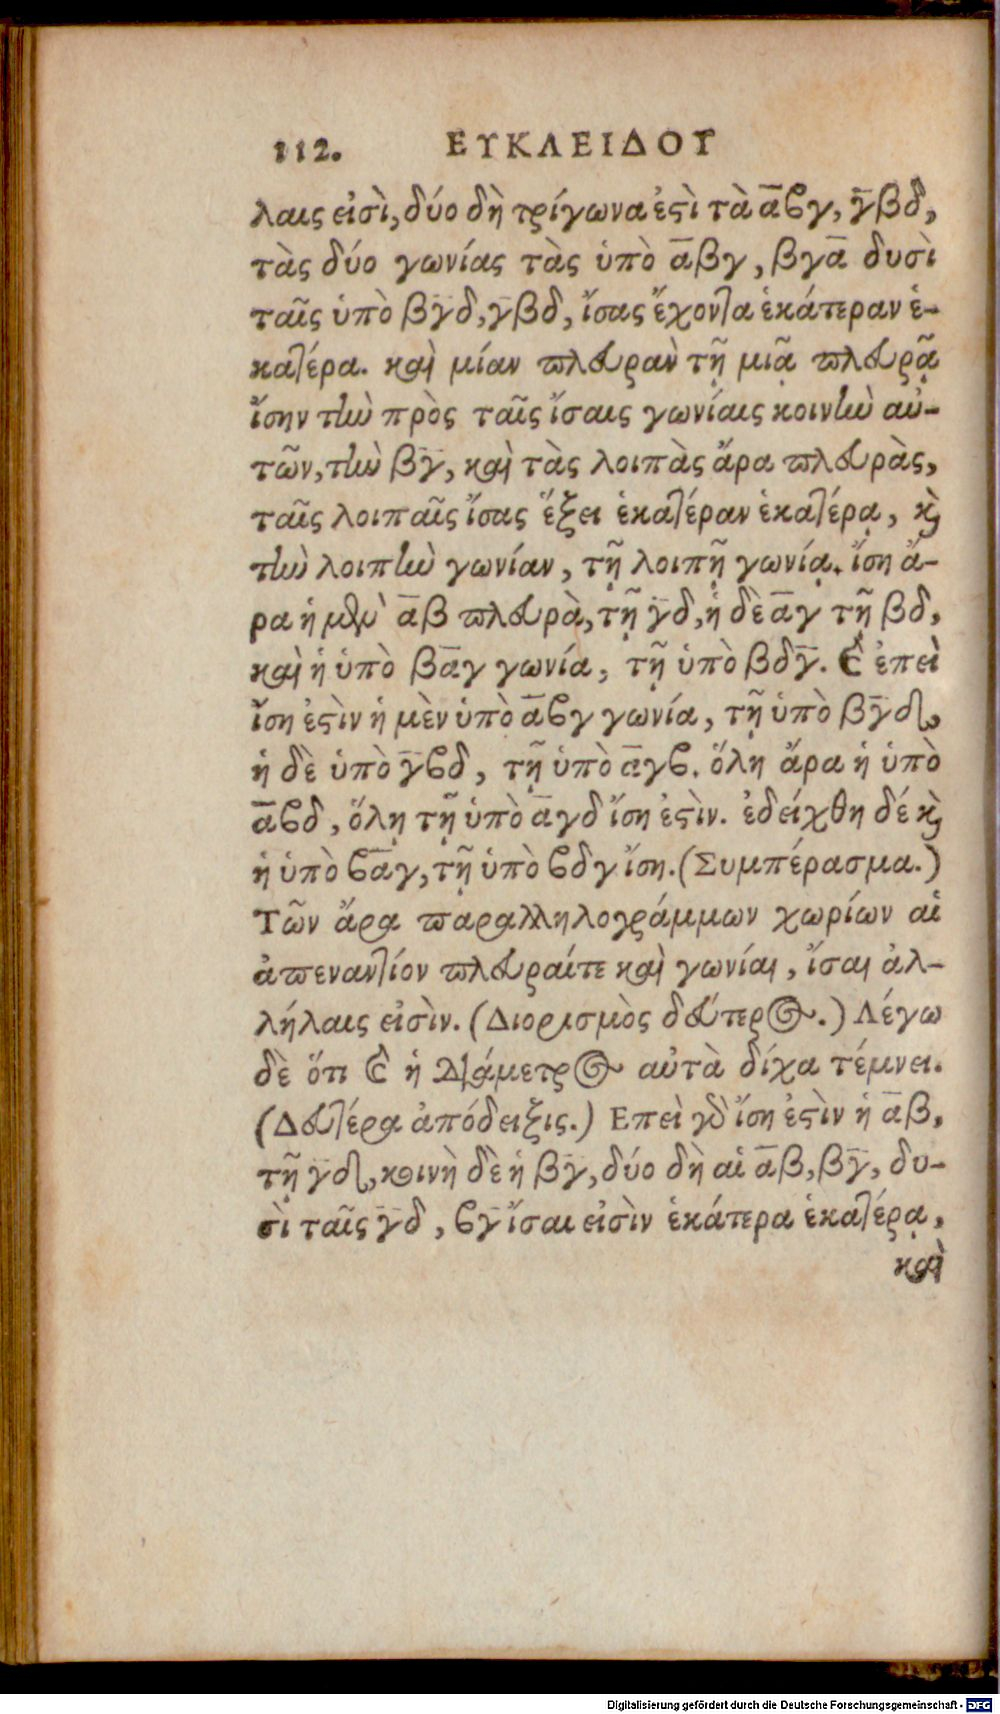 112. ΕΥΚΛΕΙΔΟΥ
λαις εἰσὶ, δύο δὴ τρίγωνα ἐϛὶ τὰ α̅ϐγ, γ̅βδ,
τὰς δύο γωνίας τὰς ὑπὸ α̅βγ, βγα̅ δυσὶ
ταῖς ὑπὸ βγ̅δ, γ̅βδ, ἴσας ἔχοντα ἑκάτεραν ἑ-
κατέρα. καὶ μίαν πλευρὰν τῇ μιᾷ πλευρᾷ
ἴσην τὴν πρὸς ταῖς ἴσαις γωνίαις κοινὴν αὐ-
τῶν, τὴν βγ̅, καὶ τὰς λοιπὰς ἄρα πλευρὰς,
ταῖς λοιπαῖς ἴσας ἕξει ἑκατέραν ἑκατέρᾳ, κ̀
τὴν λοιπὴν γωνίαν, τῇ λοιπῇ γωνίᾳ. ἴση ἄ-
ρα ἡ μὲν α̅β πλευρὰ, τῇ γ̅δ, ἡ δὲ α̅γ τῇ βδ,
καὶ ἡ ὑπὸ βα̅γ γωνία, τῇ ὑπὸ βδγ̅. καὶ ἐπεὶ
ἴση ἐϛὶν ἡ μὲν ὑπὸ α̅ϐγ γωνία, τῇ ὑπὸ βγ̅δ,
ἡ δὲ ὑπὸ γ̅ϐδ, τῇ ὑπὸ α̅γϐ. ὅλη ἄρα ἡ ὑπὸ
α̅ϐδ, ὅλῃ τῇ ὑπὸ α̅γδ ἴση ἐϛὶν. ἐδείχθη δέ κ̀
ἡ ὑπὸ ϐα̅γ, τῇ ὑπὸ ϐδγ ἴση. (Συμπέρασμα.)
Τῶν ἄρα παραλληλογράμμων χωρίων αἱ
ἀπεναντίον πλευραίτε καὶ γωνίαι, ἴσαι ἀλ-
λήλαις εἰσὶν. (Διορισμὸς δεύτερος.) Λέγω
δὲ ὅτι καὶ ἡ διάμετρος αὐτὰ δίχα τέμνει.
(Δευτέρα ἀπόδειξις.) Επεὶ γὰρ ἴση ἐϛὶν ἡ α̅β,
τῇ γ̅δ, κοινὴ δὲ ἡ βγ̅, δύο δὴ αἱ α̅β, βγ̅, δυ-
σὶ ταῖς γ̅δ, ϐγ̅ ἴσαι εἰσὶν ἑκάτερα ἑκατέρᾳ,
καὶ
Digitalisierung gefördert durch die Deutsche Forschungsgemeinschaft - DFG